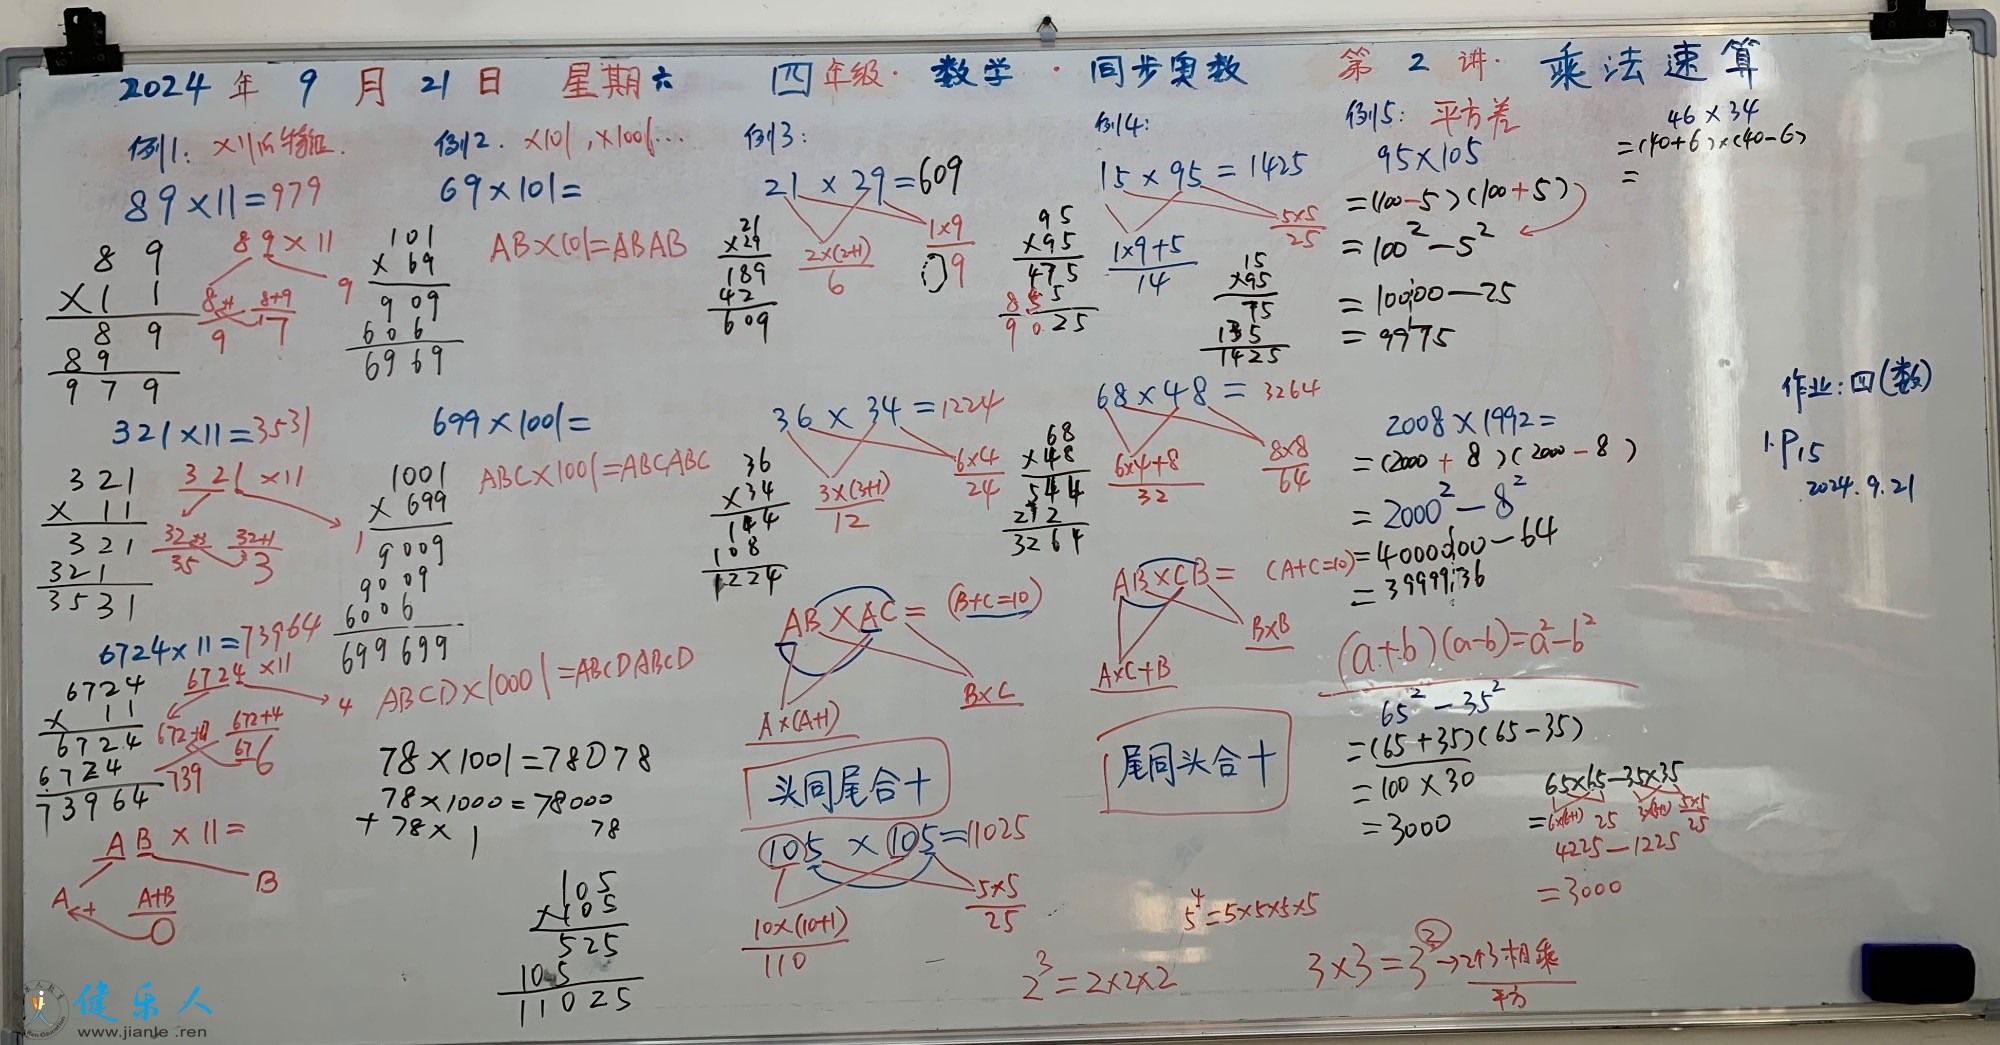 2024年9月21日 星期六 四年级·数学·同步奥数 第2讲·乘法速算
例1: ×11的特征.
89×11=979
89×11
8+1
9
8+9
17
9
89
×11
89
89
979
321×11=3531
321×11
32+3
35
32+1
33
1
321
×11
321
321
3531
6724×11=73964
6724×11
672+67
739
672+4
676
4
6724
×11
6724
6724
73964
AB×11=
A+
A+B
B
例2. ×101,×1001…
69×101=
AB×101=ABAB
101
×69
909
606
6969
699×1001=
ABC×1001=ABCABC
1001
×699
9009
9009
6006
699699
ABCD×10001=ABCDABCD
78×1001=78078
78×1000=78000
+78×1 78
105
×105
525
105
11025
例3:
21×29=609
21
×29
189
42
609
2×(2+1)
6
1×9
09
36×34=1224
36
×34
144
108
1224
3×(3+1)
12
6×4
24
AB×AC= (B+C=10)
A×(A+1)
B×C
头同尾合十
105×105=11025
10×(10+1)
110
5×5
25
例4:
15×95=1425
95
×95
475
855
9025
1×9+5
14
5×5
25
15
×95
75
135
1425
68×48=3264
68
×48
544
272
3264
6×4+8
32
8×8
64
AB×CB= (A+C=10)
A×C+B
B×B
尾同头合十
5⁴=5×5×5×5
2³=2×2×2
3×3=3²→2个3相乘
平方
例5: 平方差
95×105
=(100-5)(100+5)
=100²-5²
=10000-25
=9975
2008×1992=
=(2000+8)(2000-8)
=2000²-8²
=4000000-64
=3999936
(a+b)(a-b)=a²-b²
65²-35²
=(65+35)(65-35)
=100×30
=3000
65×65-35×35
=6×(6+1) 25 3×(3+1) 5×5
25
4225-1225
=3000
46×34
=(40+6)×(40-6)
=
作业:四(数)
1.P15
2024.9.21
健乐人
www.jianle.ren